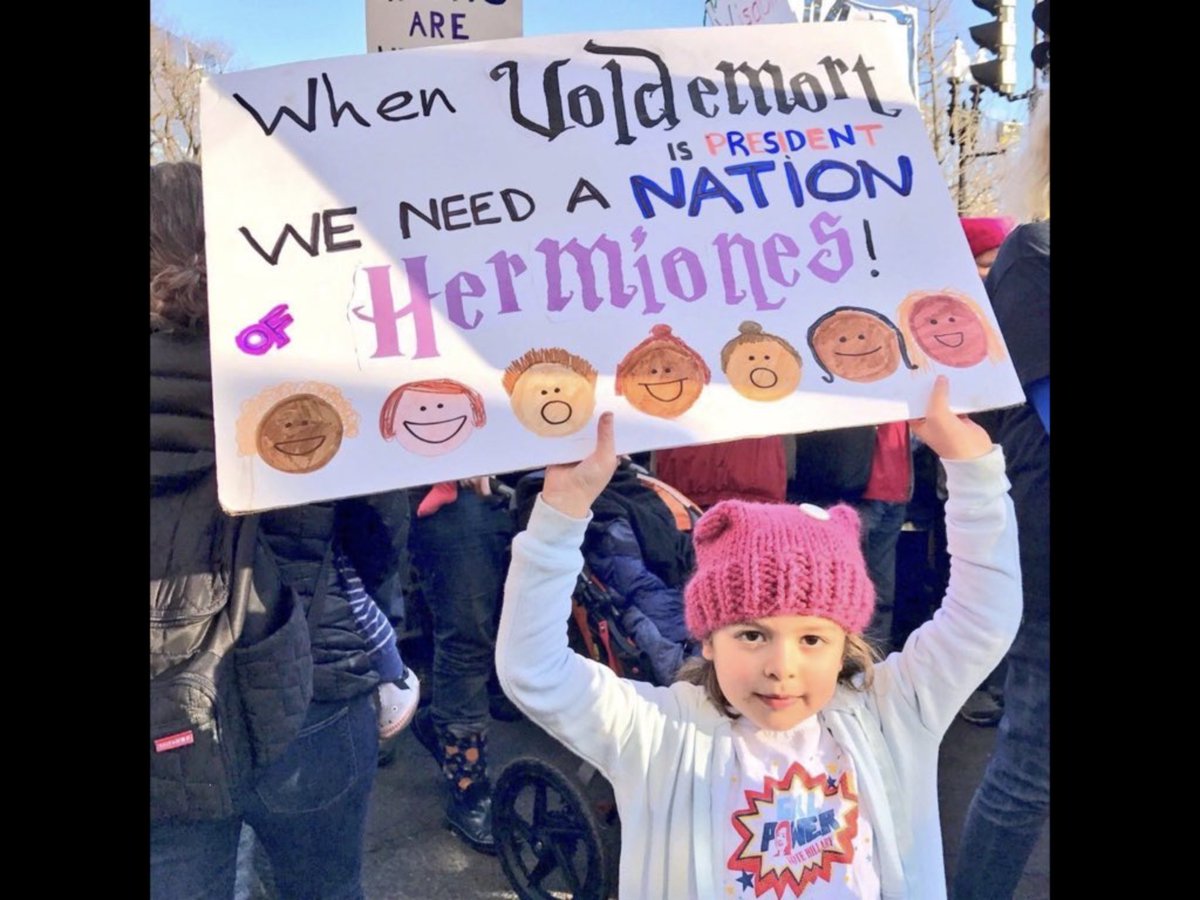 ARE
When Voldemort
IS PRESIDENT
WE NEED A NATION
OF Hermiones!
GIRL
POWER
VOTE HILLARY